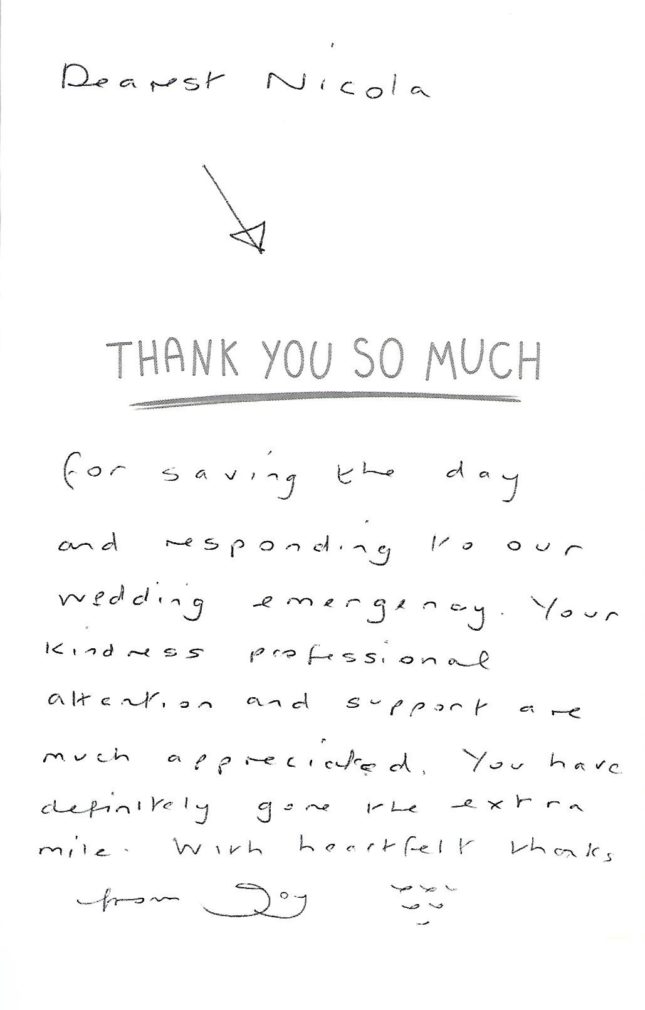 Dearest Nicola
THANK YOU SO MUCH
for saving the day
and responding to our
wedding emergency. Your
kindness professional
attention and support are
much appreciated. You have
definitely gone the extra
mile. With heartfelt thanks
from Joy